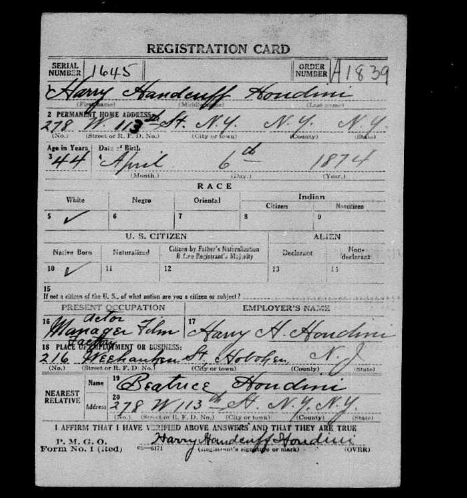 REGISTRATION CARD
SERIAL NUMBER 1645 ORDER NUMBER A1839
Harry Handcuff Houdini
(First name) (Middle name) (Last name)
2 PERMANENT HOME ADDRESS:
278 W. 113th St. N.Y. N.Y. N.Y.
(No.) (Street or R. F. D. No.) (City or town) (County) (State)
Age in Years Date of Birth
3 44 4 April 6th 1874
(Month.) (Day.) (Year.)
RACE
White Negro Oriental Indian
Citizen Noncitizen
5 ✓ 6 7 8 9
U. S. CITIZEN ALIEN
Native Born Naturalized Citizen by Father's Naturalization Before Registrant's Majority Declarant Non-declarant
10 ✓ 11 12 13 14
15
If not a citizen of the U. S., of what nation are you a citizen or subject?
PRESENT OCCUPATION EMPLOYER'S NAME
Actor
16 Manager Film 17 Harry H. Houdini
Factory
18 PLACE OF EMPLOYMENT OR BUSINESS:
216 St. Hoboken N. J.
(No.) (Street or R. F. D. No.) (City or town) (County) (State)
NEAREST RELATIVE Name 19 Beatrice Houdini
Address 20 278 W 113th St N.Y. N.Y.
(No.) (Street or R. F. D. No.) (City or town) (County) (State)
I AFFIRM THAT I HAVE VERIFIED ABOVE ANSWERS AND THAT THEY ARE TRUE
P. M. G. O. Harry Handcuff Houdini
Form No. 1 (Red) (Registrant's signature or mark) (OVER)